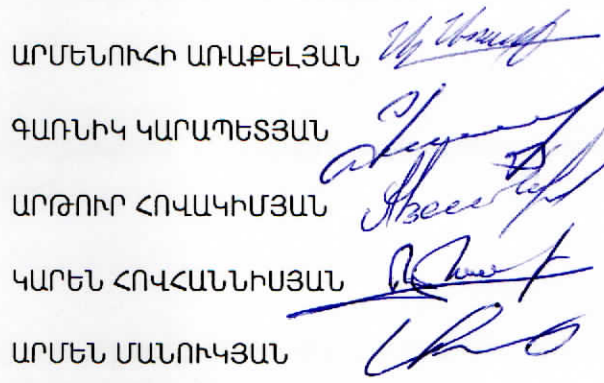 ԱՐՄԵՆՈՒՀԻ ԱՌԱՔԵԼՅԱՆ
ԳԱՌՆԻԿ ԿԱՐԱՊԵՏՅԱՆ
ԱՐԹՈՒՐ ՀՈՎԱԿԻՄՅԱՆ
ԿԱՐԵՆ ՀՈՎՀԱՆՆԻՍՅԱՆ
ԱՐՄԵՆ ՄԱՆՈՒԿՅԱՆ